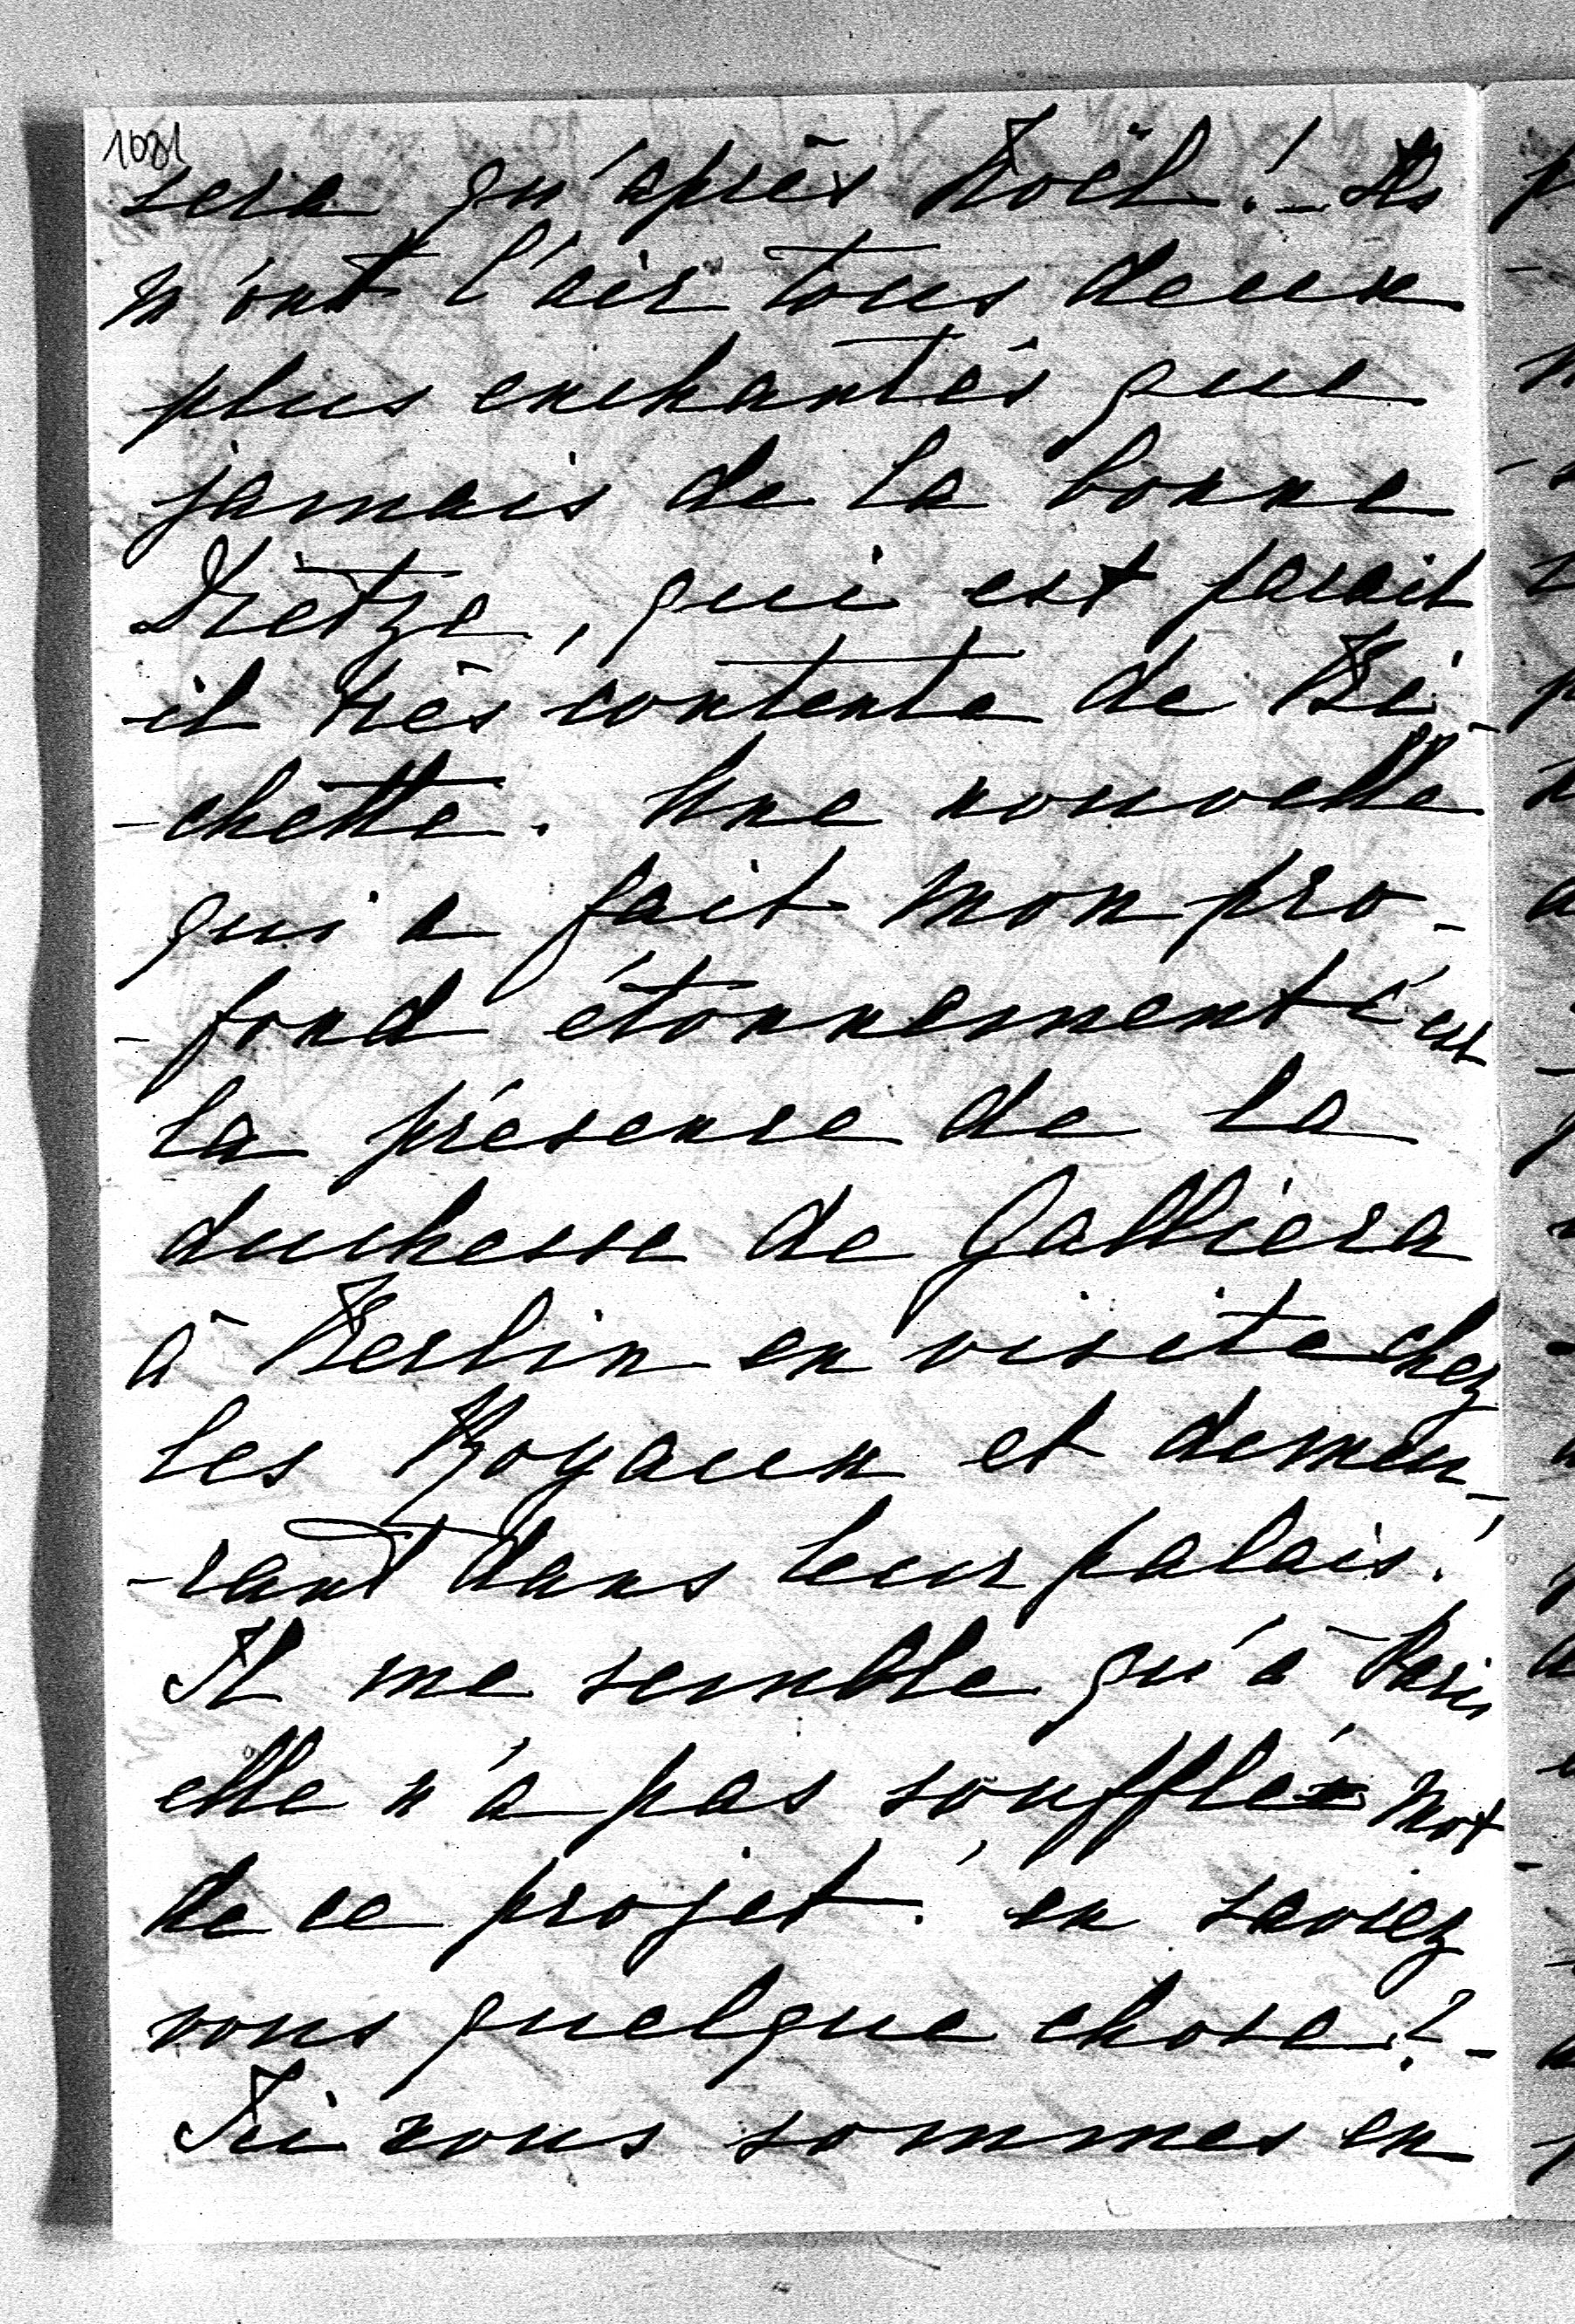 1081
sera qu'après Noël! - Ils
n'ont l'air tous deux
plus enchantés que
jamais de la bonne
Dietze, qui est parait
-il très contente de Bi-
-chette. Une nouvelle
qui a fait mon pro-
-fond étonnement c'est
la présence de la
duchesse de Galliera
à Berlin en visite chez
les Royaux et demeu-
-rant dans leur palais!
Il me semble qu'à Paris
elle n'a pas soufflé mot
de ce projet; en saviez
vous quelque chose? -
Ici nous sommes en